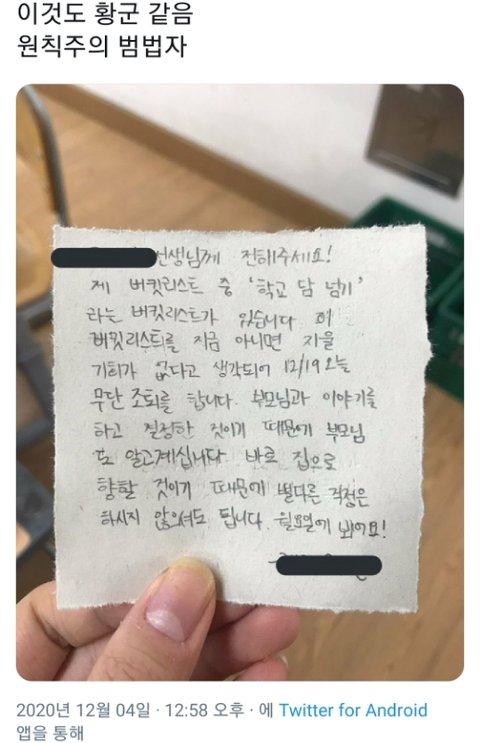 이것도 황군 같음
원칙주의 범법자
선생님께 전해주세요!
제 버킷리스트 중 '학교 담 넘기'
라는 버킷리스트가 있습니다 이
버킷리스트를 지금 아니면 지울
기회가 없다고 생각되어 12/19 오늘
무단 조퇴를 합니다. 부모님과 이야기를
하고 결정한 것이기 때문에 부모님
도 알고계십니다. 바로 집으로
향할 것이기 때문에 별다른 걱정은
하시지 않으셔도 됩니다. 월요일에 봬어요!
2020년 12월 04일 · 12:58 오후 · 에 Twitter for Android
앱을 통해